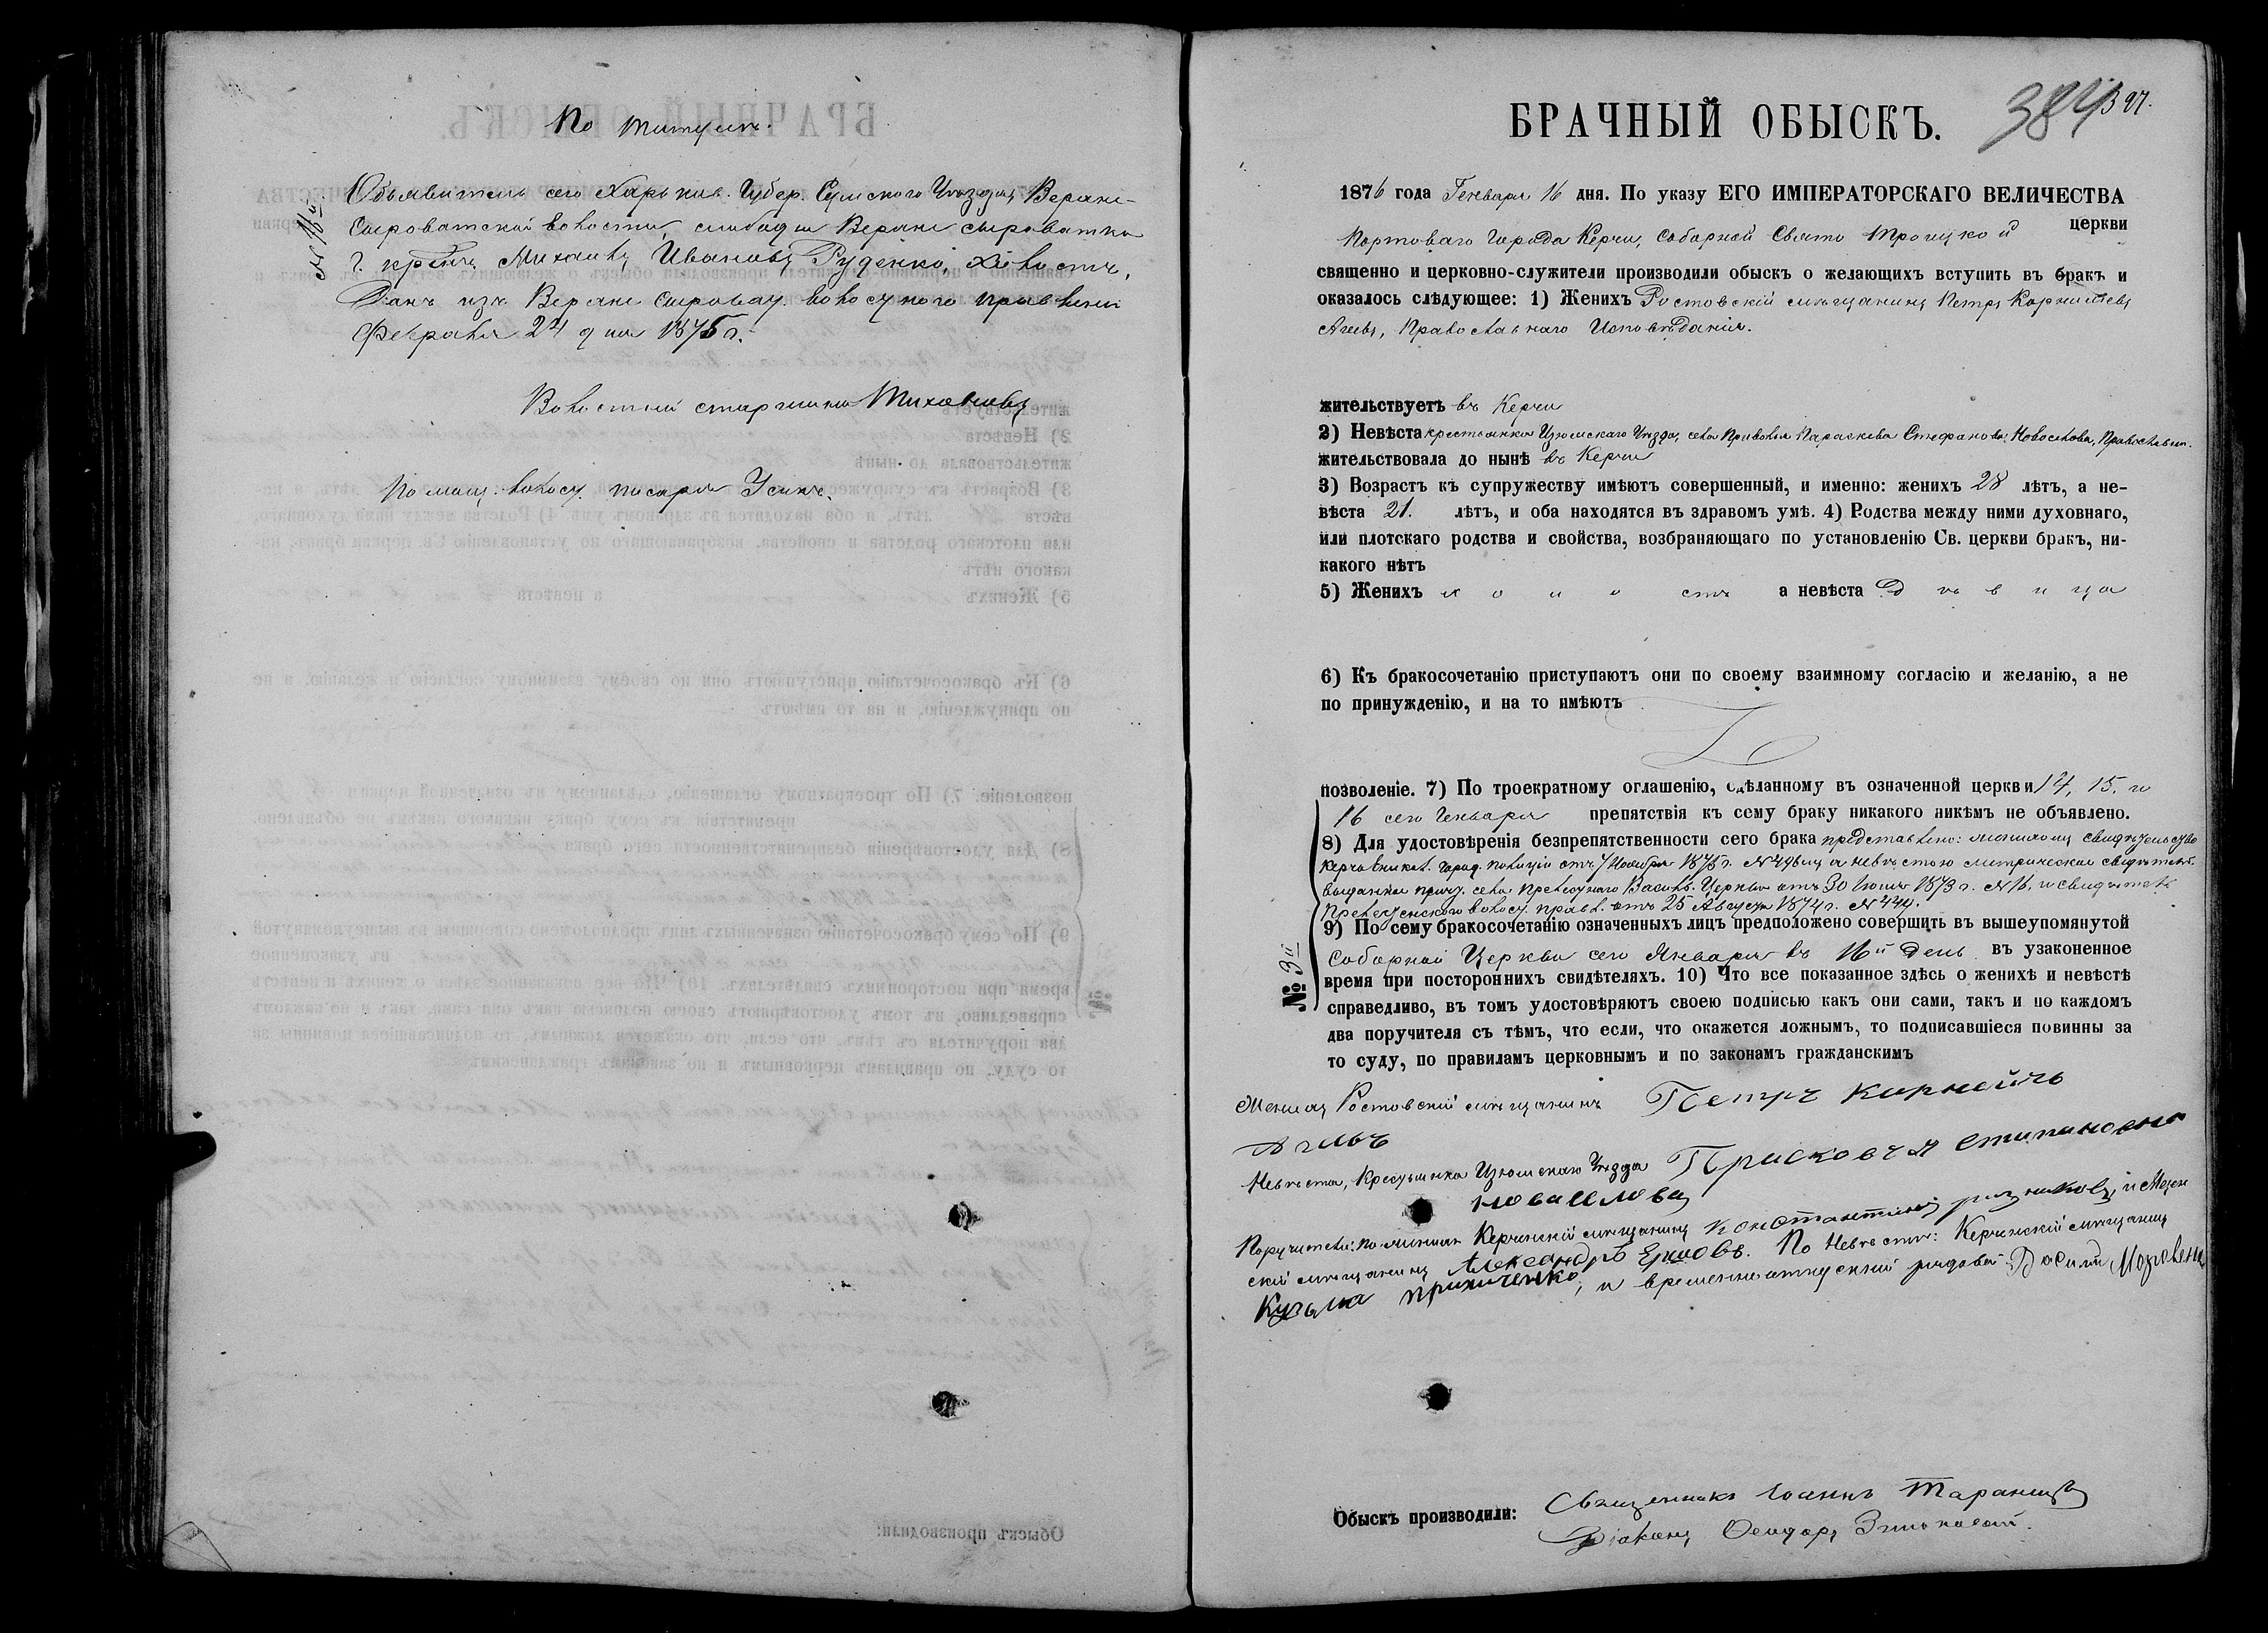 По титулѣ.
№ 16й
Объявитель сего Харьков. Губер. Сумскаго Уѣзда, Верхне-
Сыроватской волости, слободы Верхне Сыроватка
г. крест. Михаилъ Ивановъ Руденко, холостъ,
Данъ изъ Верхне Сыроват. волостного правленія
Февраля 24 дня 1875 г.
Волостной старшина
По мощ. волост. писаря Усикъ.
БРАЧНЫЙ ОБЫСКЪ.
384 397.
1876 года Генваря 16 дня. По указу ЕГО ИМПЕРАТОРСКАГО ВЕЛИЧЕСТВА
Портоваго Города Керчи, Соборной Свято Троицкой церкви
священно и церковно-служители производили обыскъ о желающихъ вступить въ бракъ и
оказалось слѣдующее: 1) Женихъ Ростовскій мѣщанинъ Петръ Корнилиевъ
Агѣевъ, Православнаго Исповѣданія.
жительствуетъ въ Керчи
2) Невѣста крестьянка Изюмскаго Уѣзда, села Приволья Параскева Стефанова Новоселова, Православн.
жительствовала до нынѣ въ Керчи
3) Возрастъ къ супружеству имѣютъ совершенный, и именно: женихъ 28 лѣтъ, а не-
вѣста 21. лѣтъ, и оба находятся въ здравомъ умѣ. 4) Родства между ними духовнаго,
или плотскаго родства и свойства, возбраняющаго по установленію Св. церкви бракъ, ни-
какого нѣтъ
5) Женихъ холостъ а невѣста Дѣвица
6) Къ бракосочетанію приступаютъ они по своему взаимному согласію и желанію, а не
по принужденію, и на то имѣютъ
позволеніе. 7) По троекратному оглашенію, сдѣланному въ означенной церкви 14, 15, и
16 сего Генваря препятствія къ сему браку никакого никѣмъ не объявлено.
8) Для удостовѣренія безпрепятственности сего брака представлено: женихомъ свидѣтельство
Керчь Еникол. город. полиціи отъ 7 Ноября 1875 г. № а невѣстою метрическое свидѣтел.
выданное причт. села Васил. Церкви отъ 30 Іюля 1873 г. № 16, и свидѣтел.
волост. правл. отъ 25 Августа 1874 г. № 444.
9) По сему бракосочетанію означенныхъ лицъ предположено совершить въ вышеупомянутой
Соборной Церкви сего Января въ 16й день въ узаконенное
№ 3й
время при постороннихъ свидѣтеляхъ. 10) Что все показанное здѣсь о женихѣ и невѣстѣ
справедливо, въ томъ удостовѣряютъ своею подписью какъ они сами, такъ и по каждомъ
два поручителя съ тѣмъ, что если, что окажется ложнымъ, то подписавшіеся повинны за
то суду, по правиламъ церковнымъ и по законамъ гражданскимъ
Женихъ Ростовскій мѣщанинъ Петръ Карнеичъ
Невѣста, Крестьянка Изюмскаго Уѣзда Присковья Стипановна
Поручители: по женихѣ Керченскій мѣщанинъ Константинъ
скій мѣщанинъ Александръ Ершовъ. По Невѣстѣ: Керченскій мѣщанинъ
Кузьма Прихиченко, и временноотпускной рядовой
Обыскъ производили: Священникъ Іоаннъ
Діаконъ Ѳеодоръ Зеньковскій.